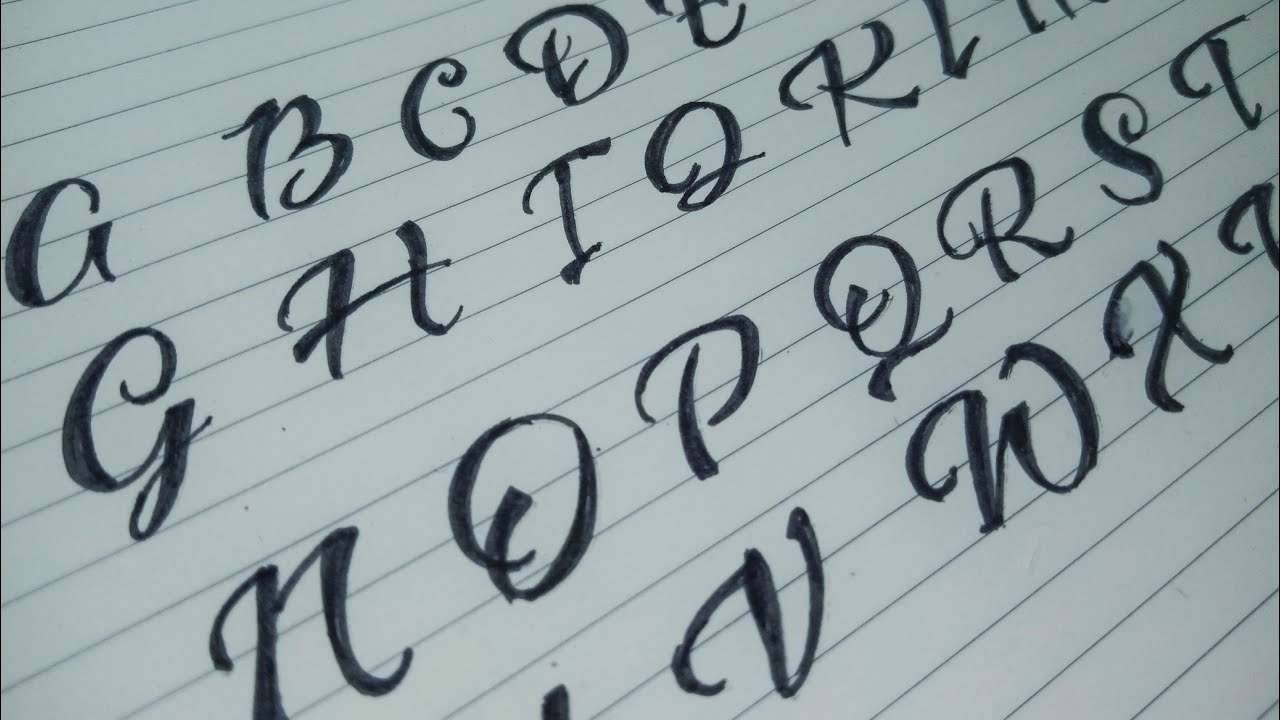 A B C D E
G H I J K L
N O P Q R S T
V W X